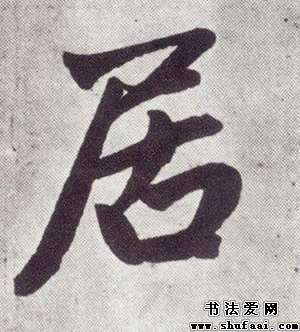 居
书法爱网
www.shufaai.com